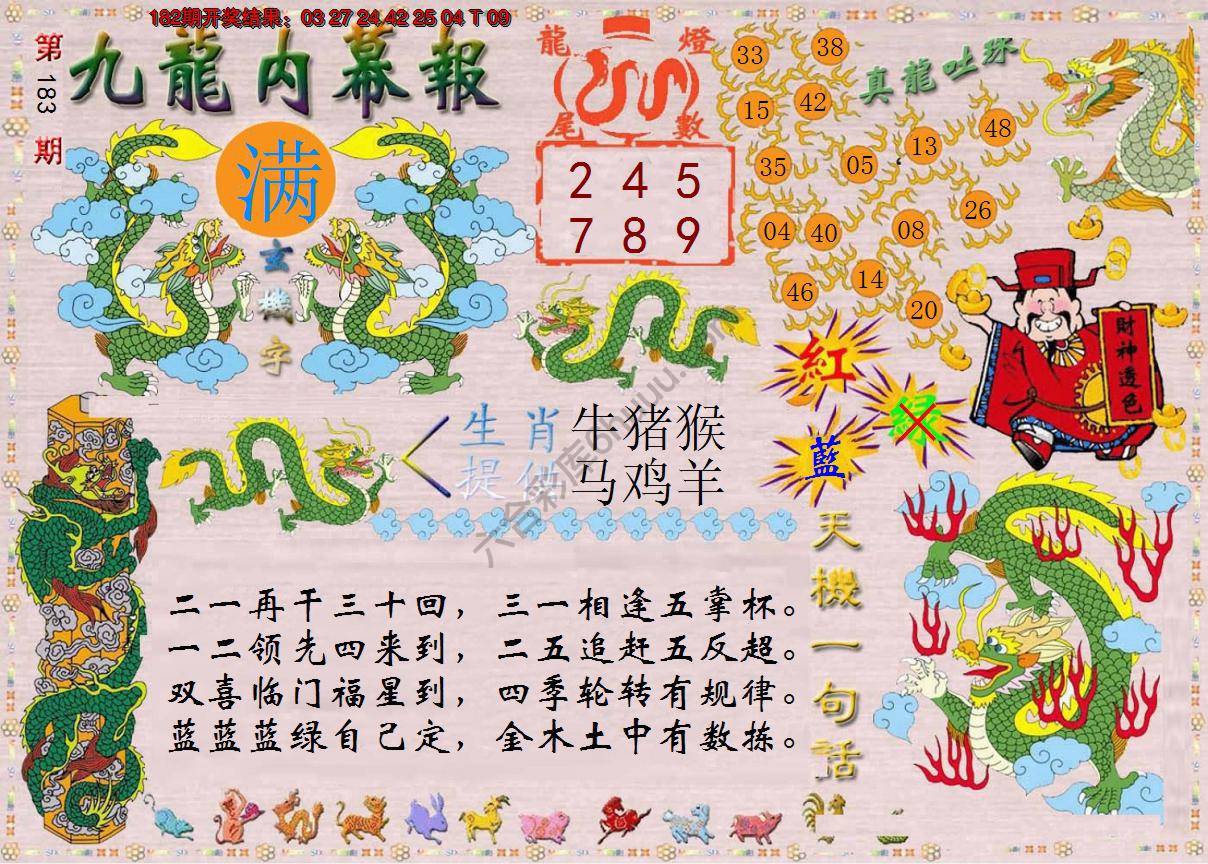 182期开奖结果：03 27 24 42 25 04 T 09
第183期
九龍内幕報
满
玄機字
龍燈
尾數
2 4 5
7 8 9
真龍吐珠
33
38
15
42
35
05
13
48
04
40
08
26
46
14
20
財神透色
紅
绿
藍
生肖
提供
牛猪猴
马鸡羊
天機一句話
二一再干三十回，三一相逢五掌杯。
一二领先四来到，二五追赶五反超。
双喜临门福星到，四季轮转有规律。
蓝蓝蓝绿自己定，金木土中有数拣。